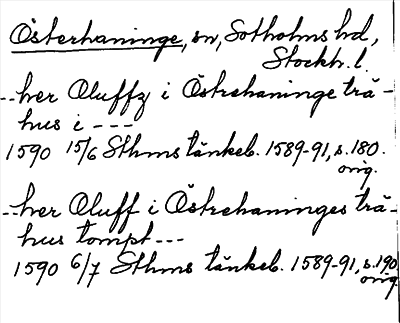 Österhaninge, sn, Sotholms hd,
Stockh. l.
--her Oluffz i Östrehaninge trä-
hus i ----
1590 15/6 Sthms tänkeb. 1589-91, s. 180.
orig.
--her Oluff i Östrehaninges trä-
hus tompt ---
1590 6/7 Sthms tänkeb. 1589-91, s. 190
orig.